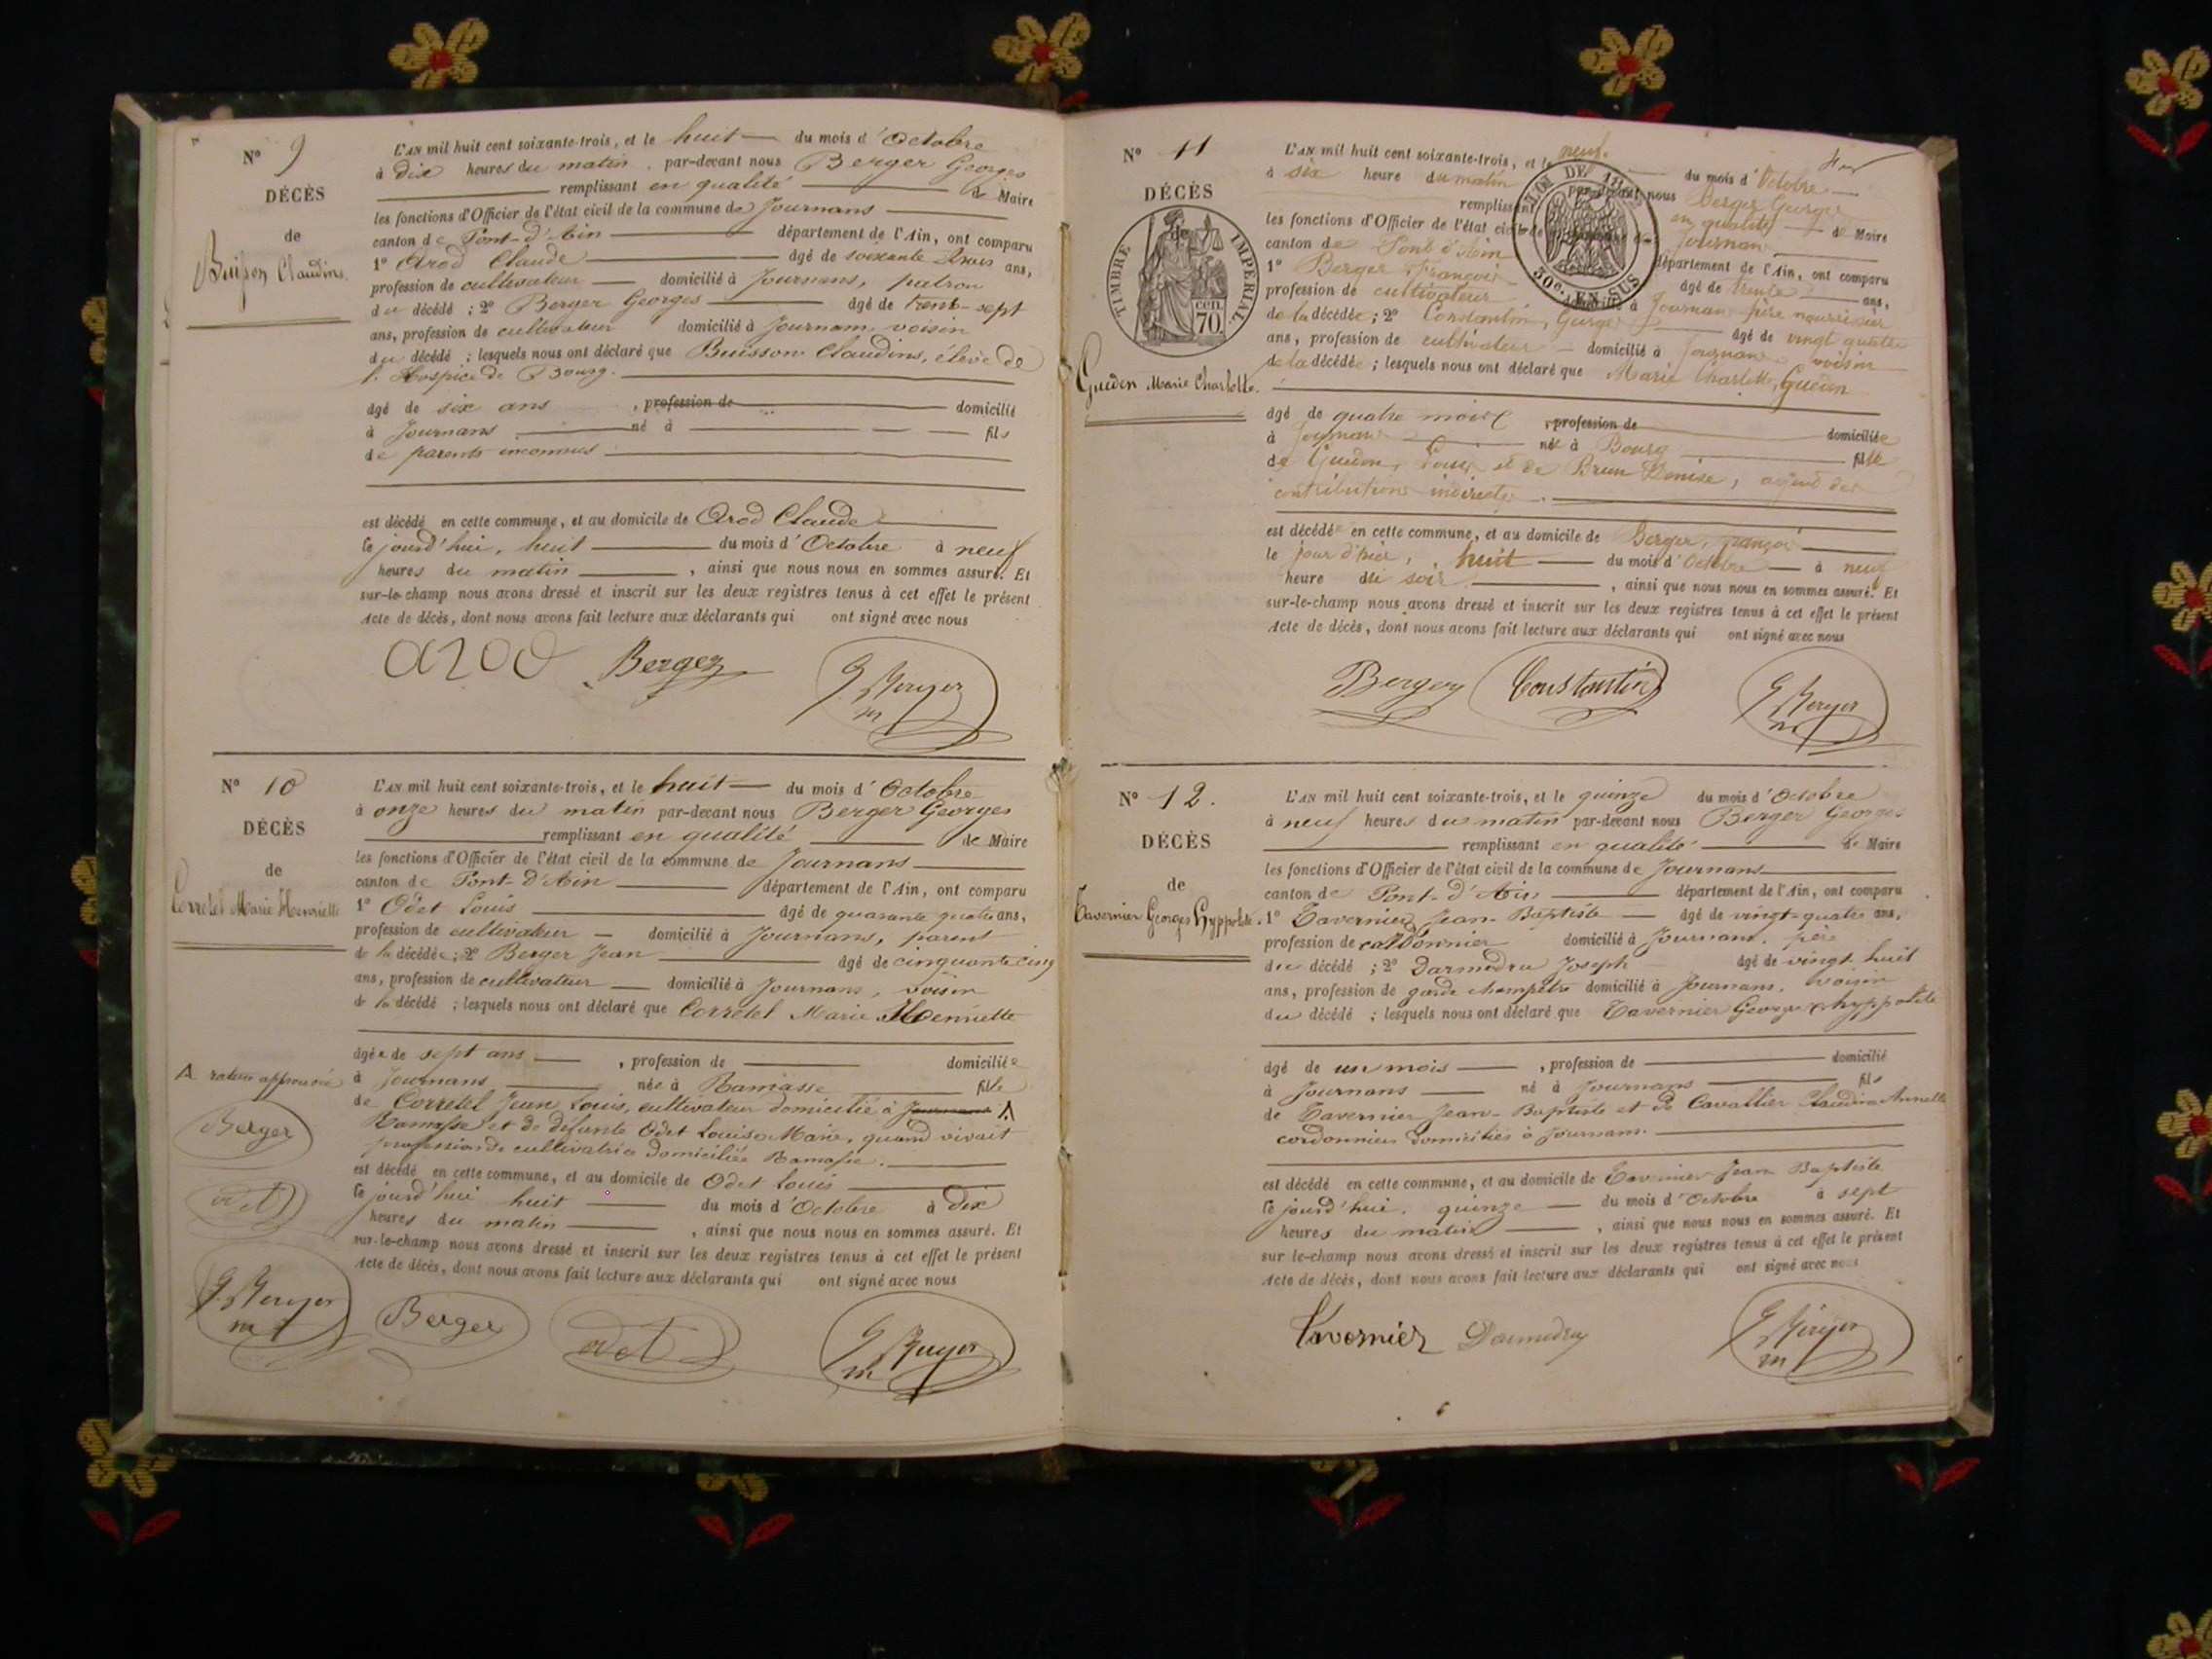 N° 9
DÉCÈS
de
Buisson Claudins.
L'AN mil huit cent soixante-trois, et le huit du mois d'Octobre
à dix heures du matin par-devant nous Berger Georges
remplissant en qualité de Maire
les fonctions d'Officier de l'état civil de la commune de Journans
canton de Pont-d'Ain département de l'Ain, ont comparu
1° Arod Claude âgé de soixante trois ans,
profession de cultivateur domicilié à Journans, patron
du décédé ; 2° Berger Georges âgé de trente-sept
ans, profession de cultivateur domicilié à Journans voisin
du décédé ; lesquels nous ont déclaré que Buisson Claudins, élève de
l'Hospice de Bourg.
âgé de six ans , profession de domicilié
à Journans né à fils
de parents inconnus
est décédé en cette commune, et au domicile de Arod Claude
le jourd'hui, huit du mois d'Octobre à neuf
heures du matin , ainsi que nous nous en sommes assuré. Et
sur-le-champ nous avons dressé et inscrit sur les deux registres tenus à cet effet le présent
Acte de décès, dont nous avons fait lecture aux déclarants qui ont signé avec nous
Arod Berger G Berger m
N° 10
DÉCÈS
de
Corretel Marie Henriette
L'AN mil huit cent soixante-trois, et le huit du mois d'Octobre
à onze heures du matin par-devant nous Berger Georges
remplissant en qualité de Maire
les fonctions d'Officier de l'état civil de la commune de Journans
canton de Pont-d'Ain département de l'Ain, ont comparu
1° Odet Louis âgé de quarante quatre ans,
profession de cultivateur domicilié à Journans, parent
de la décédée ; 2° Berger Jean âgé de cinquante cinq
ans, profession de cultivateur domicilié à Journans, voisin
de la décédé ; lesquels nous ont déclaré que Corretel Marie Henriette
âgée de sept ans , profession de domiciliée
à Journans née à Ramasse fille
de Corretel Jean Louis, cultivateur domicilié à Journans A
Ramasse et de défunte Odet Louise Marie, quand vivait
profession de cultivatrice domiciliée Ramasse.
est décédé en cette commune, et au domicile de Odet Louis
le jourd'hui huit du mois d'Octobre à dix
heures du matin , ainsi que nous nous en sommes assuré. Et
sur-le-champ nous avons dressé et inscrit sur les deux registres tenus à cet effet le présent
Acte de décès, dont nous avons fait lecture aux déclarants qui ont signé avec nous
A rature approuvée
Berger
odet
G Berger m
Berger odet G Berger m
N° 11
DÉCÈS
de
TIMBRE IMPERIAL
70 cen.
Guédon Marie Charlotte.
LOI DE
50c. EN SUS
L'AN mil huit cent soixante-trois, et le neuf du mois d'Octobre
à six heure du matin par-devant nous Berger Georges
remplissant en qualité de Maire
les fonctions d'Officier de l'état civil de la commune de Journans
canton de Pont d'Ain département de l'Ain, ont comparu
1° Berger François âgé de trente ans,
profession de cultivateur domicilié à Journans père nourricier
de la décédée ; 2° Constantin, George âgé de vingt quatre
ans, profession de cultivateur domicilié à Journans voisin
de la décédée ; lesquels nous ont déclaré que Marie Charlotte, Guédon
âgé de quatre mois , profession de domiciliée
à Journans née à Bourg fille
de Guédon, Louis et de Brun Denise, agent des
contributions indirectes.
est décédée en cette commune, et au domicile de Berger, françois
le jour d'hier, huit du mois d'Octobre à neuf
heure du soir , ainsi que nous nous en sommes assuré. Et
sur-le-champ nous avons dressé et inscrit sur les deux registres tenus à cet effet le présent
Acte de décès, dont nous avons fait lecture aux déclarants qui ont signé avec nous
Berger Constantin G Berger m
N° 12.
DÉCÈS
de
Tavernier Georges Hyppolite.
L'AN mil huit cent soixante-trois, et le quinze du mois d'Octobre
à neuf heures du matin par-devant nous Berger Georges
remplissant en qualité de Maire
les fonctions d'Officier de l'état civil de la commune de Journans
canton de Pont-d'Ain département de l'Ain, ont comparu
1° Tavernier Jean-Baptiste âgé de vingt-quatre ans,
profession de cordonnier domicilié à Journans. père
du décédé ; 2° Darmedru Joseph âgé de vingt-huit
ans, profession de garde champêtre domicilié à Journans. voisin
du décédé ; lesquels nous ont déclaré que Tavernier George hyppolite
âgé de un mois , profession de domicilié
à Journans né à Journans fils
de Tavernier Jean-Baptiste et de Cavallier Claudine Annette
cordonniers domiciliés à Journans.
est décédé en cette commune, et au domicile de Tavernier Jean Baptiste
le jourd'hui, quinze du mois d'Octobre à sept
heures du matin , ainsi que nous nous en sommes assuré. Et
sur le-champ nous avons dressé et inscrit sur les deux registres tenus à cet effet le présent
Acte de décès, dont nous avons fait lecture aux déclarants qui ont signé avec nous
Tavernier Darmedru G Berger m